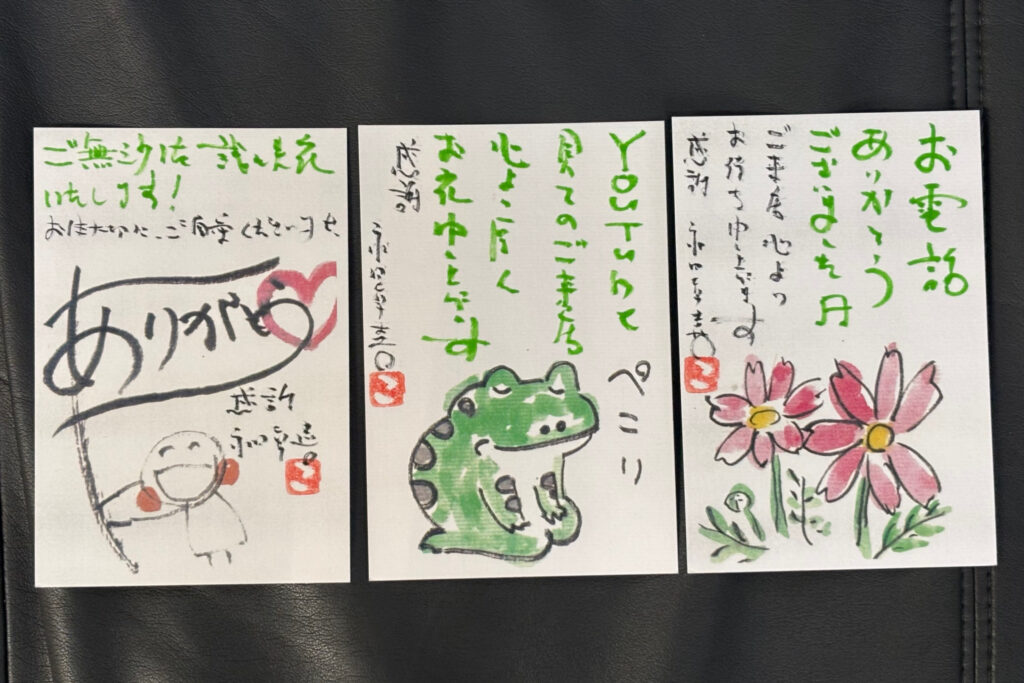 ご無沙汰
します!
ご自愛くださいませ
ありがとう
感謝
YouTubeを
見てのご来店
心より厚く
お礼申し上げます
感謝
ぺこり
お電話
ありがとう
ございました
ご来店 心より
お待ち申し上げます
感謝